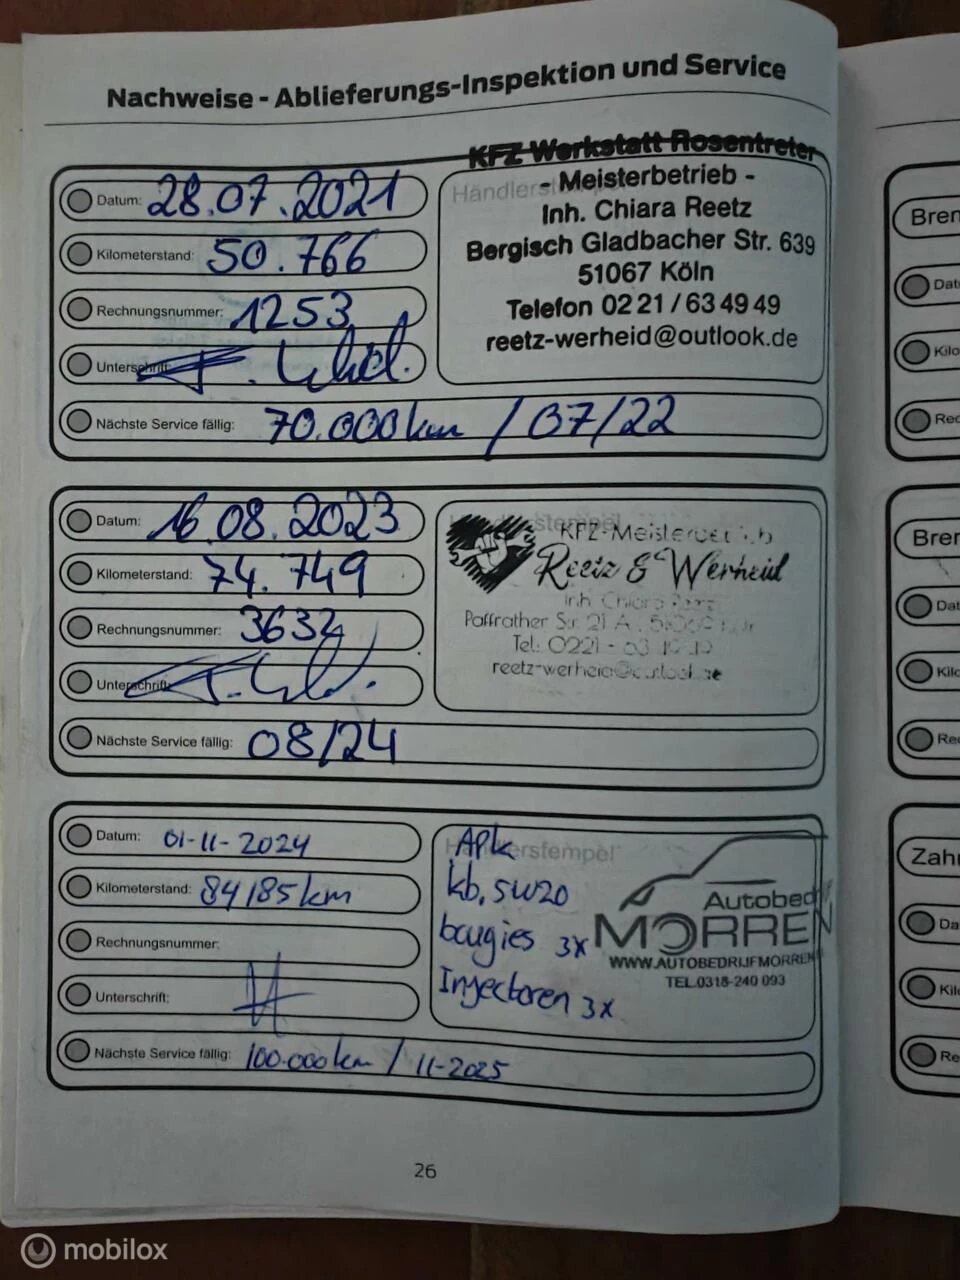 Nachweise - Ablieferungs-Inspektion und Service
Datum: 28.07.2021
Kilometerstand: 50.766
Rechnungsnummer: 1253
Unterschrift:
Nächste Service fällig: 70.000 km / 07/22
Händlerstempel
KFZ Werkstatt Rosentreter
- Meisterbetrieb -
Inh. Chiara Reetz
Bergisch Gladbacher Str. 639
51067 Köln
Telefon 02 21 / 63 49 49
reetz-werheid@outlook.de
Datum: 16.08.2023
Kilometerstand: 74.749
Rechnungsnummer: 3632
Unterschrift:
Nächste Service fällig: 08/24
Händlerstempel
KFZ-Meisterbetrieb
Reetz & Werheid
Inh. Chiara Reetz
Paffrather Str. 21 A
Tel.: 0221 -
reetz-werheid@outlook.de
Datum: 01-11-2024
Kilometerstand: 84185 km
Rechnungsnummer:
Unterschrift:
Nächste Service fällig: 100.000 km / 11-2025
Händlerstempel
Apk
kb. 5W20
bougies 3x
Injectoren 3x
Autobed
MORREN
WWW.AUTOBEDRIJFMORREN
TEL.0318-240 093
26
Bren
Dat
Kilo
Rec
Bren
Dat
Kilo
Rec
Zah
Da
Kil
Re
mobilox